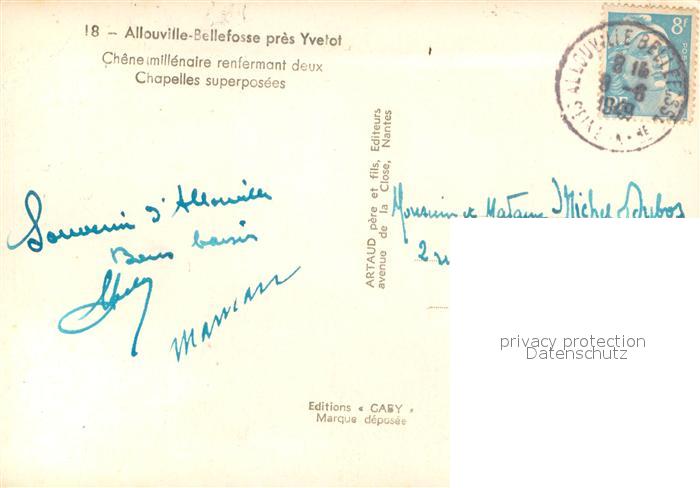 18 - Allouville-Bellefosse près Yvetot
Chêne millénaire renfermant deux
Chapelles superposées
8f
ALLOUVILLE BELLEFOSSE
8 15
8 - 6
1949
SEINE INRE
RF
ARTAUD père et fils, Editeurs
avenue de la Close, Nantes
Souvenir d'Allouville
Bons baisers
maman
Monsieur et Madame Michel
2 r
privacy protection
Datenschutz
Editions « GABY »
Marque déposée